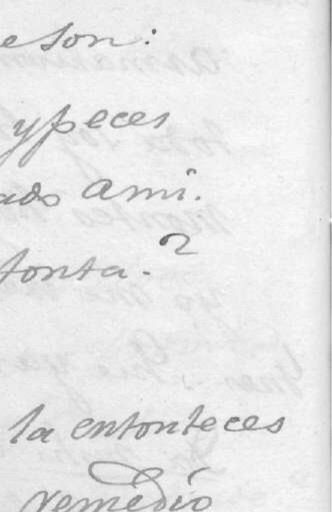 eson:
y peces
ado ami.
tonta.
la entonteces
remedio